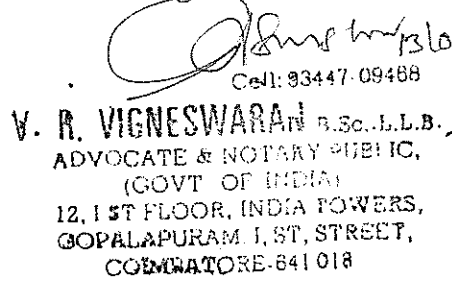 Cell: 93447-09468
V. R. VIGNESWARAN B.Sc.,L.L.B.,
ADVOCATE & NOTARY PUBLIC,
(GOVT OF INDIA)
12, I ST FLOOR, INDIA TOWERS,
GOPALAPURAM I, ST, STREET,
COIMBATORE-641 018